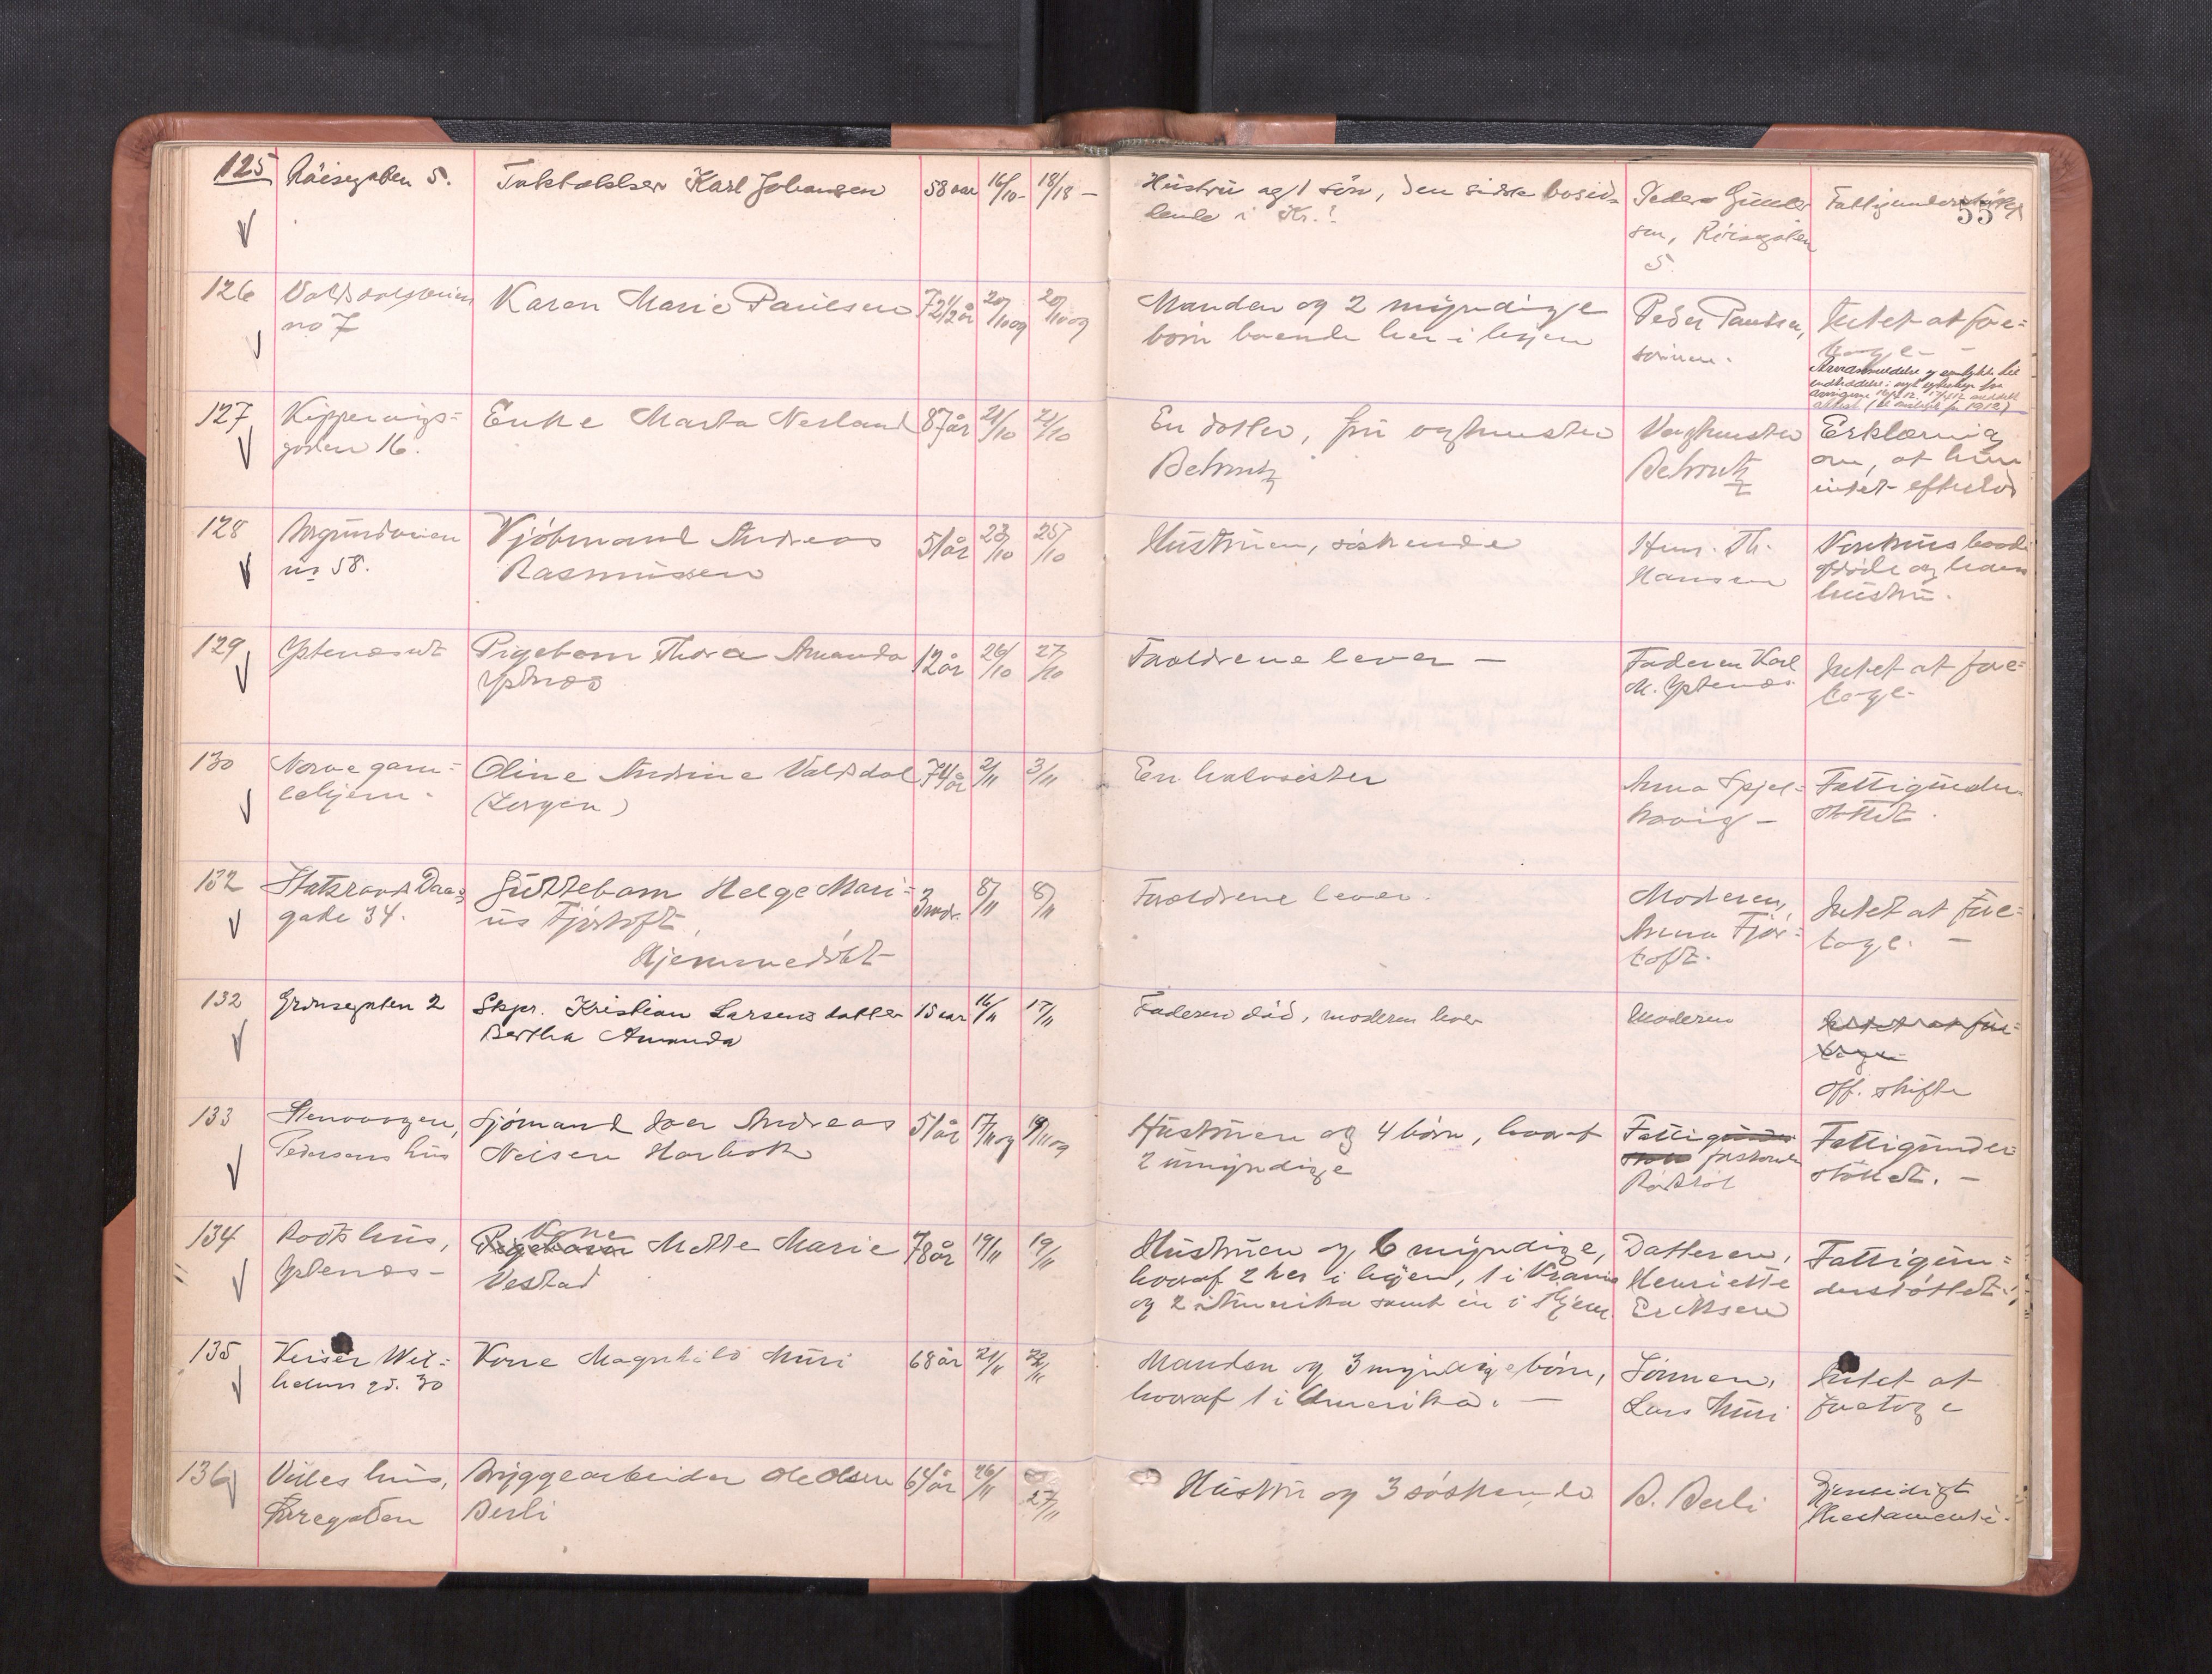 125 Röisegaten 5. Taktækker Karl Johansen 58 aar 16/10- 18/18 - Hustru og 1 sön, den sidste bosid-
dende i Kr.! Peder Gunder
sen, Röisegaten
5. Fattigunderstøttet
55
126 Volsdalsveien
no 7 Karen Marie Paulsen 72 1/2 år 20/10 09 20/10 09 Manden og 2 myndige
börn boende her i byen Peder Paulsen,
sönnen. Intet at fore=
tage -
127 Kippervigs=
gaden 16. Enke Marta Nesland 87 år 21/10 21/10 En datter, fru vagtmester
Behrentz Vagtmester
Behrentz Erklæring
om, at hun
intet efterlod
128 Borgundveien
nr 58. Kjöbmand Andreas
Rasmussen 51 år 23/10 25/10 Hustruen, söskende
Hansen
hustru.
129 Ystenæsvt Pigebarn Thora Amanda
Ystnæs 12 år 26/10 27/10 Forældrene lever - Faderen Karl
M. Ystenæs. Intet at fore=
tage.
130 Nørve gam=
lehjem. Oline Andrine Valdsdal
(Lorgen) 74 år 2/11 3/11 En halvsöster Anna Spjel=
kavig - Fattigunder
støttet.
132 Statsraad Daaes
gate 34. Guttebarn Helge Mari=
us Fjörtoft,
Hjemmedöbt 3 mdr. 8/11 8/11 Forældrene lever. Moderen,
Anna Fjör=
toft. Intet at fore=
tage. -
132 Grönsegaten 2 Skpr. Kristian Larsens datter
Bertha Amanda 15 aar 16/11 17/11 Faderen död, moderen lever Moderen Intet at fore=
tage
Off. skifte
133 Stenvaagen,
Pedersens hus Sjömand Joer Andreas
Nelsen Harbok 51 år 17/11 09 19/11 09 Hustruen og 4 börn, hvoraf
2 umyndige Fattigunder
støtt forstander
Rödsöl Fattigunder=
støttet. -
134 Rods hus,
Ystenæs - Pigebarn Kone Mette Marie
Vestad 78 år 19/11 19/11 Hustruen og 6 myndige,
hvoraf 2 her i byen, 1 i Kr.ania
og 2 i Amerika samt en i Hjem. Datteren,
Henriette
Eriksen Fattigun=
derstøttet.
135 Keiser Wil=
helms gd. 30 Kone Magnhild Muri 68 år 21/11 22/11 Manden og 3 myndige börn,
hvoraf 1 i Amerika. - Sönnen,
Lars Muri Intet at
foretage
136 Viiles hus,
Øvregaten Bryggearbeider Ole Olsen
Berli 64 år 26/11 27/11 Hustru og 3 söskende B. Berli Gjensidigt
Thestamente.